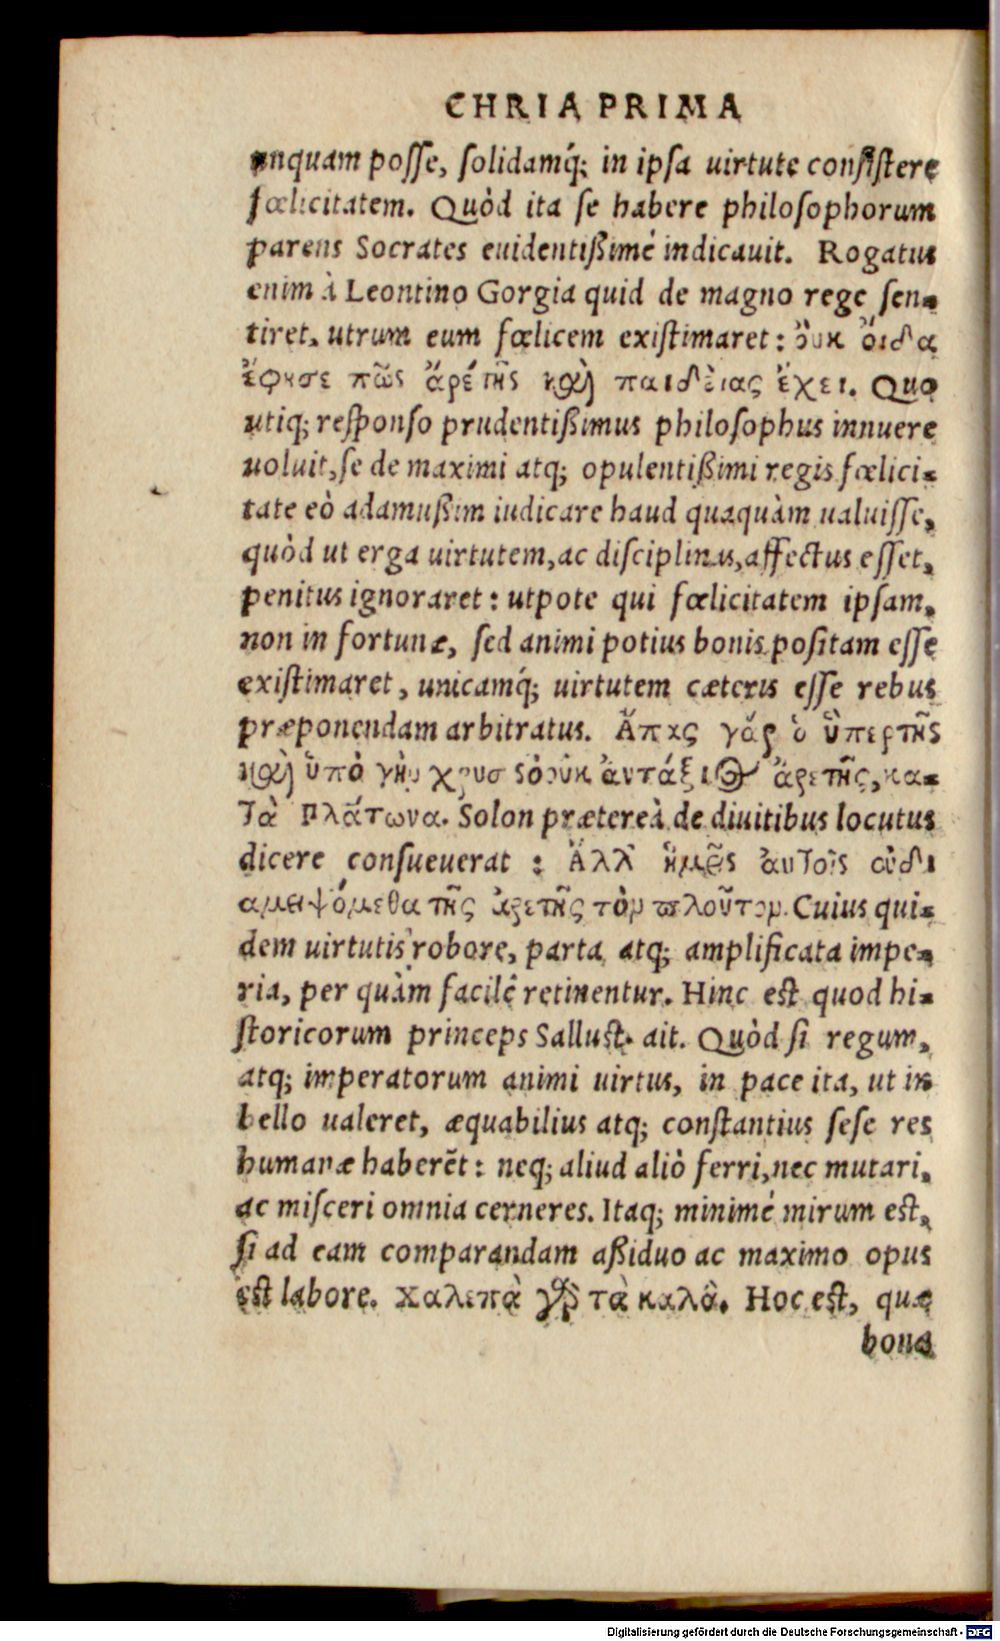 CHRIA PRIMA
unquam posse, solidamq́; in ipsa uirtute consistere
fœlicitatem. Quòd ita se habere philosophorum
parens Socrates euidentißimè indicauit. Rogatus
enim à Leontino Gorgia quid de magno rege sen-
tiret, utrum eum fœlicem existimaret: ὂυκ ὄιδα
ἔφησε πῶς ἄρέτῆς καὶ παιδὲιας ἔχει. Quo
utiq; responso prudentißimus philosophus innuere
uoluit, se de maximi atq; opulentißimi regis fœlici-
tate eò adamußim iudicare haud quaquàm ualuisse,
quòd ut erga uirtutem, ac disciplinas, affectus esset,
penitus ignoraret: utpote qui fœlicitatem ipsam,
non in fortunæ, sed animi potius bonis positam esse
existimaret, unicamq́; uirtutem cæteris esse rebus
præponendam arbitratus. Ἅπας γάρ ὁ ὓπερτῆς
καὶ ὓπὸ γὴν χρυσ ςὸουκ ἀντάξιος ἄρετῆς, κα-
τὰ Πλάτωνα. Solon prætereà de diuitibus locutus
dicere consueuerat : Ἄλλ' ἥμεῖς ἀυτοῖς οὐδι
αμειψόμεθα τῆς ἀρετῆς τὸν πλοῦτον. Cuius qui-
dem uirtutis robore, parta atq; amplificata impe-
ria, per quàm facilè retinentur. Hinc est quod hi-
storicorum princeps Sallust. ait. Quòd si regum,
atq; imperatorum animi uirtus, in pace ita, ut in
bello ualeret, æquabilius atq; constantius sese res
humanæ haberēt: neq; aliud aliò ferri, nec mutari,
ac misceri omnia cerneres. Itaq; minimè mirum est,
si ad eam comparandam aßiduo ac maximo opus
est labore. Χαλεπὰ γὰρ τὰ καλὰ. Hoc est, quæ
bona
Digitalisierung gefördert durch die Deutsche Forschungsgemeinschaft - DFG